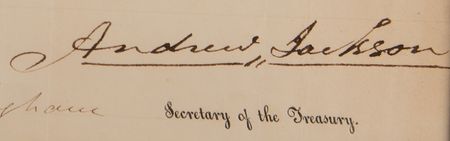 Andrew Jackson
gham
Secretary of the Treasury.